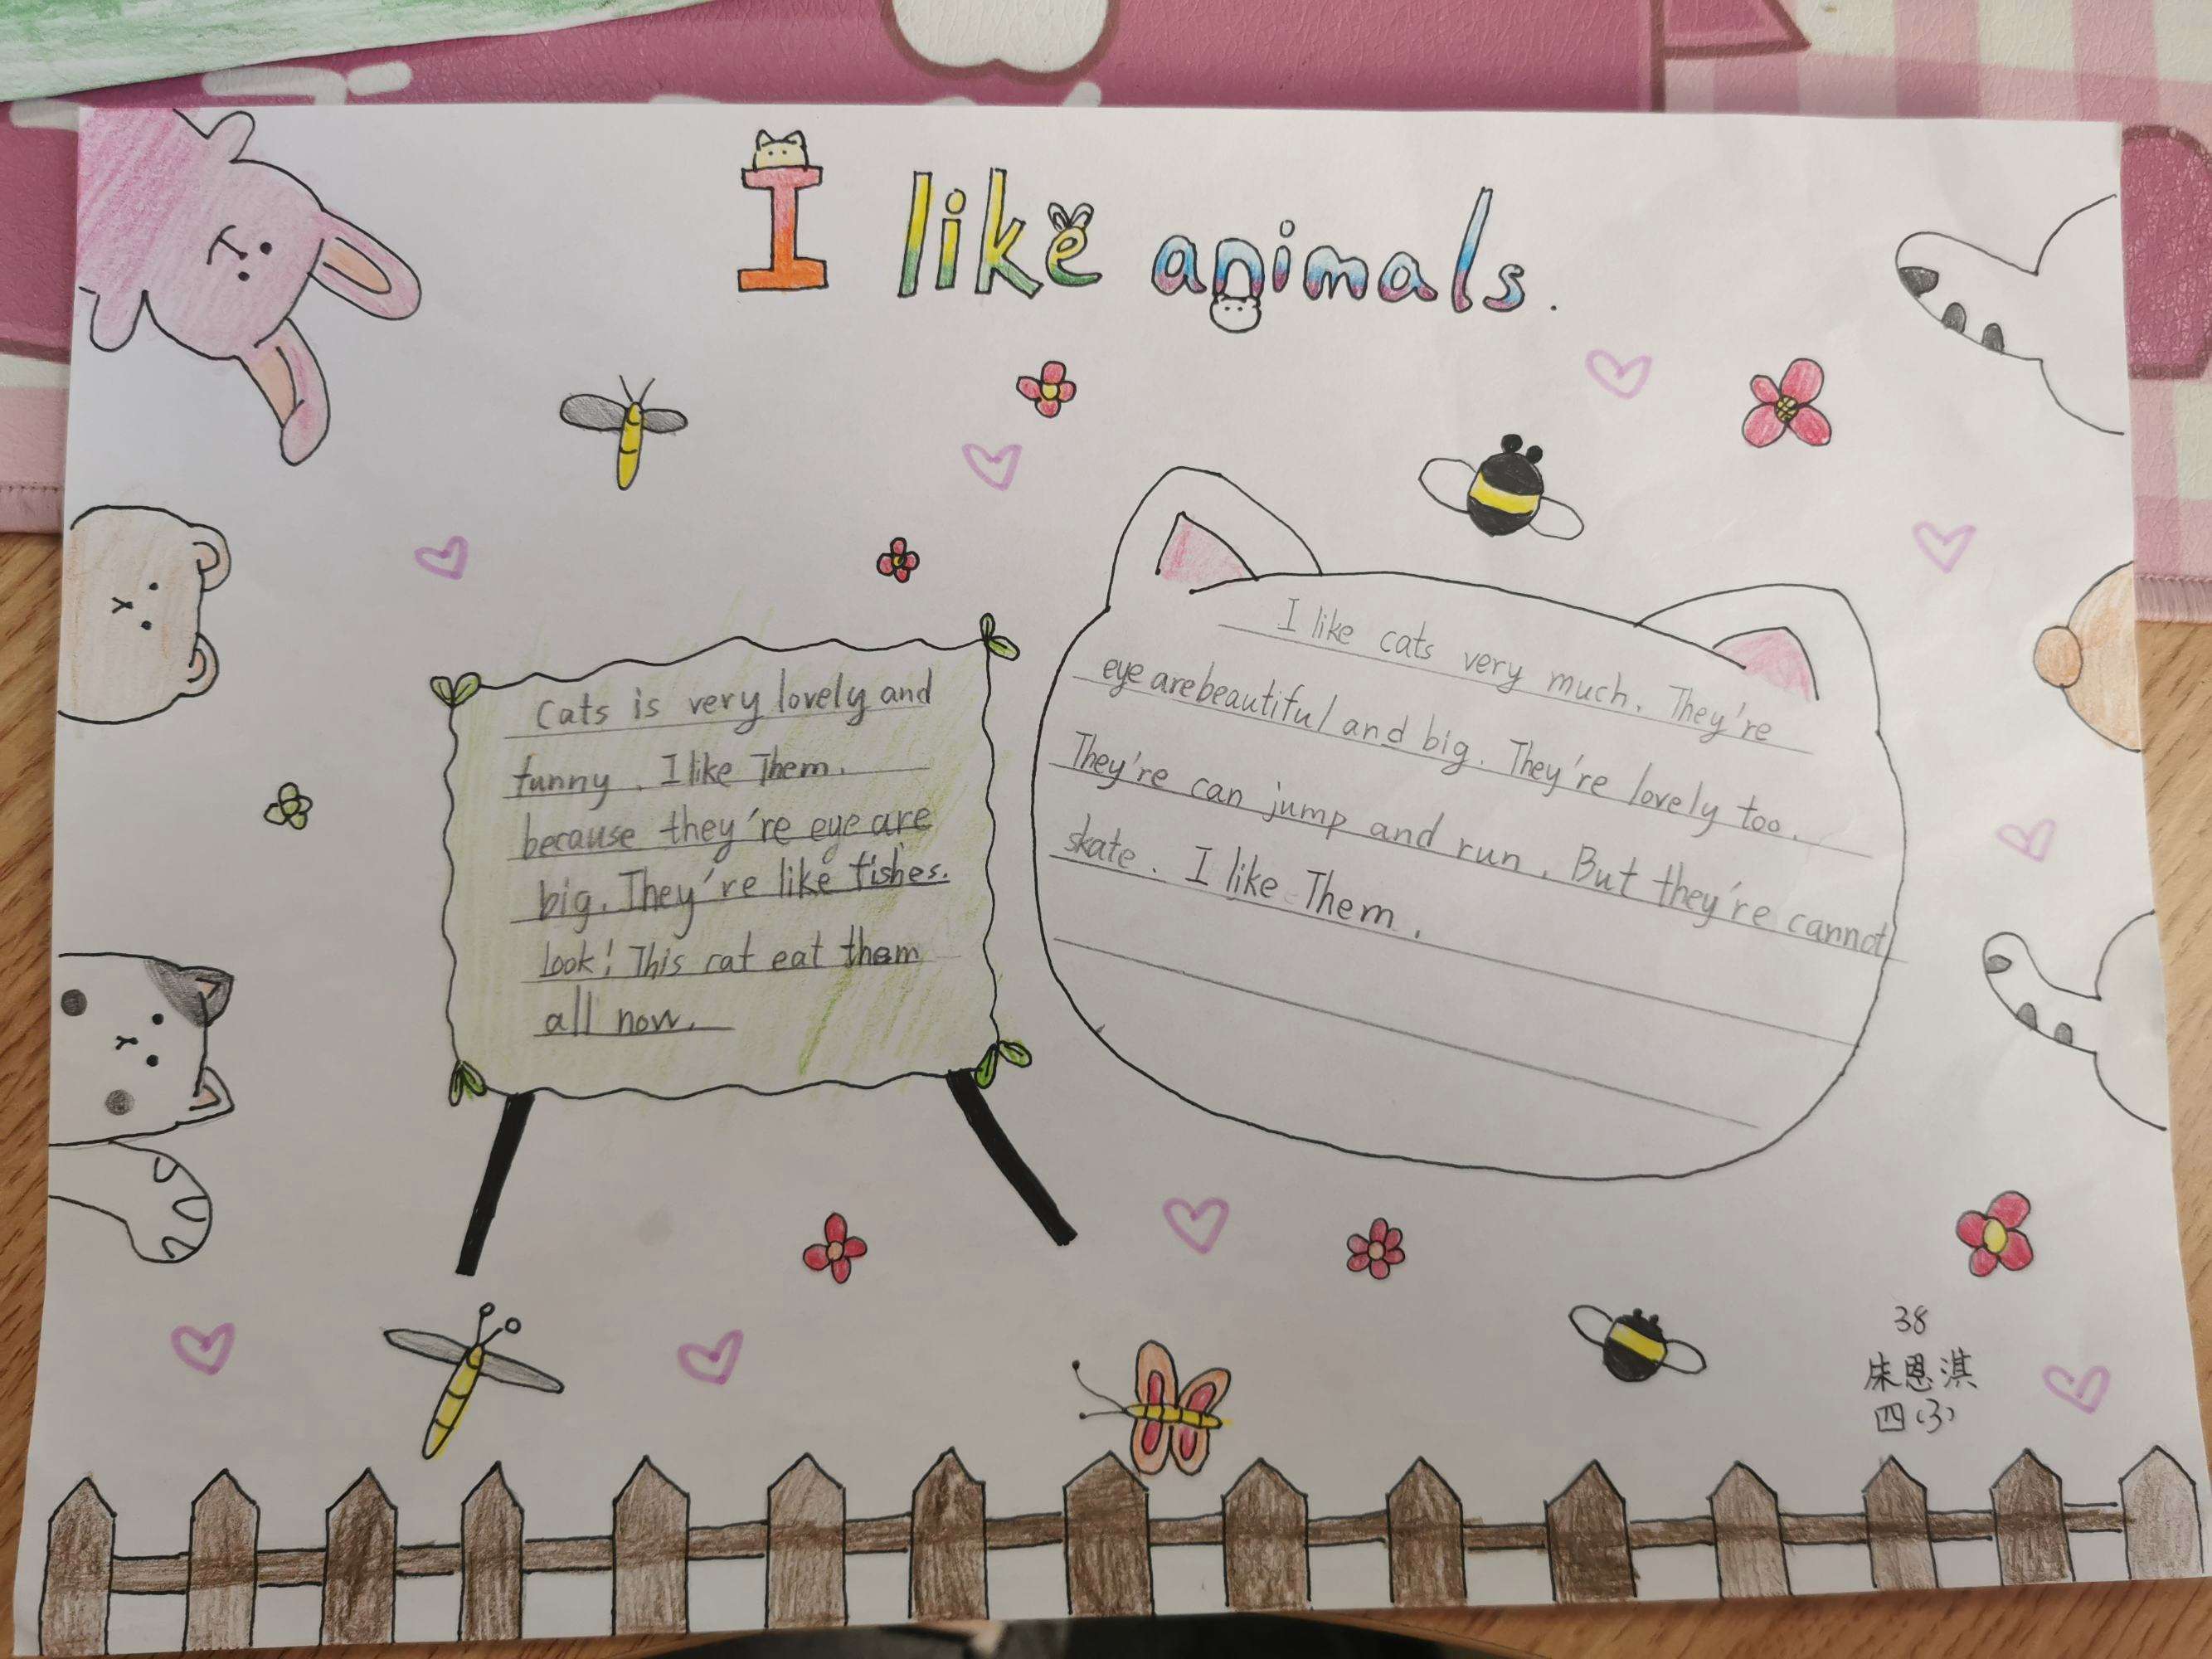 I like animals.
Cats is very lovely and
funny. I like Them.
because they're eye are
big. They're like fishes.
Look! This cat eat them
all now.
I like cats very much. They're
eye are beautiful and big. They're lovely too.
They're can jump and run. But they're cannot
skate. I like Them.
38
朱恩淇
四(3)